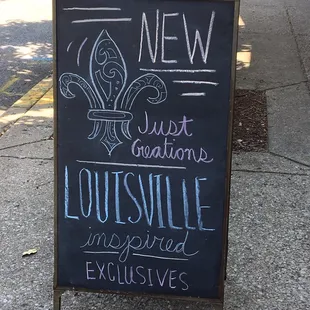 NEW
Just
Creations
LOUISVILLE
inspired
EXCLUSIVES